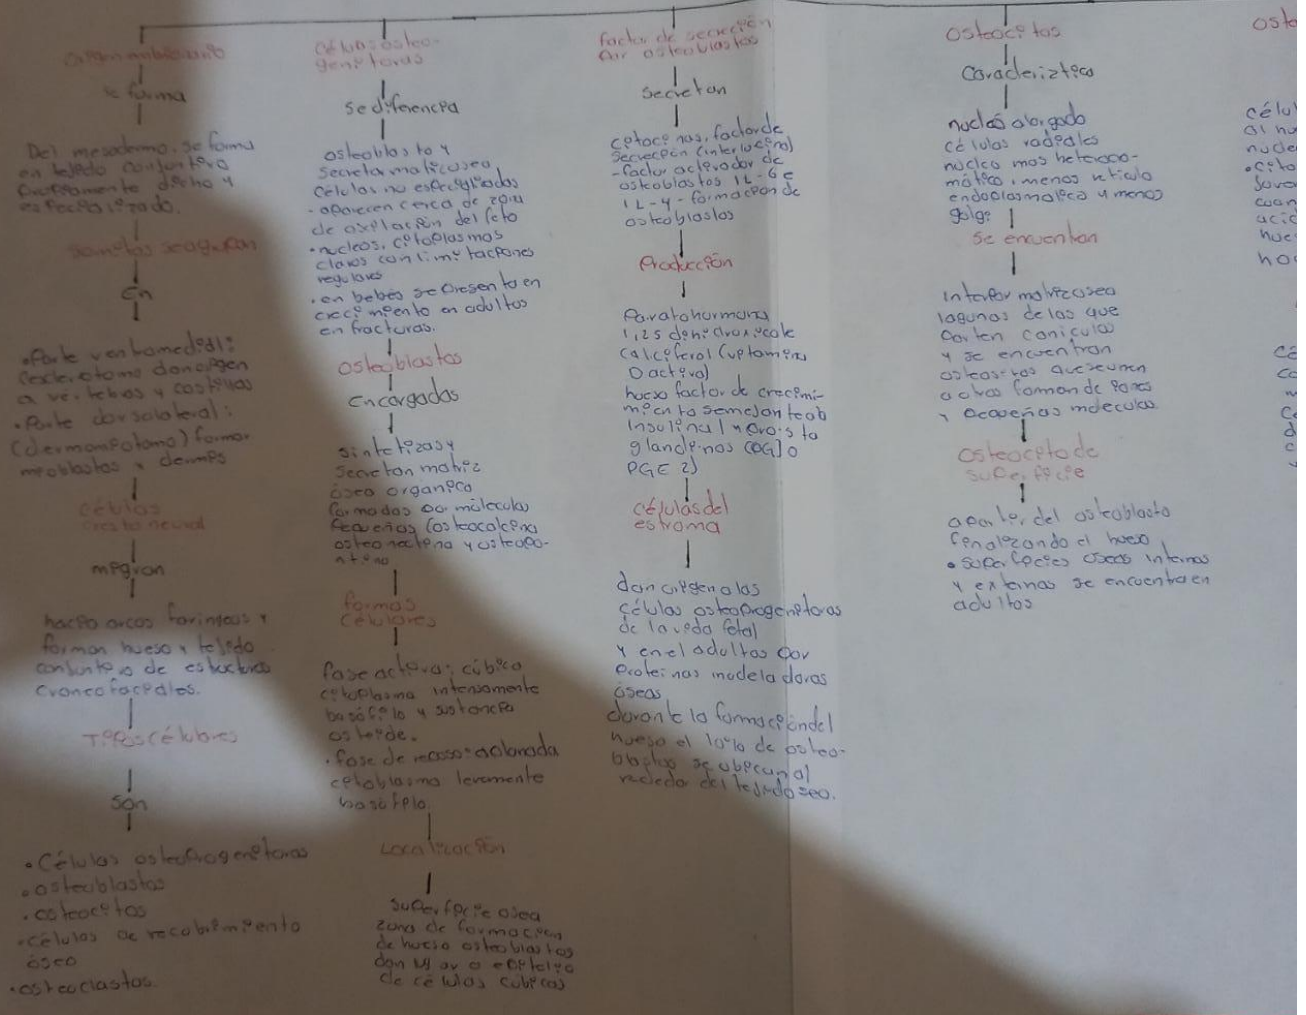 Origen embrionario
se forma
Del mesodermo, se forma
en tejido conjuntivo
propiamente dicho y
especializado.
Somitas se agrupan
En
• Parte ventromedial:
(esclerotomo dan origen
a vertebras y costillas
• Parte dorsolateral:
(dermomiotomo) forman
mioblastos y dermis
Células
cresta neural
migran
hacia arcos faringeos y
forman hueso y tejido
conjuntivo de estructuras
craneofaciales.
Tipos célulares
son
• Células osteoprogenitoras
• osteoblastos
• osteocitos
• células de recobrimiento
óseo
• osteoclastos.
Células osteo-
genitoras
se diferencia
osteoblasto y
secreta matriz osea
células no especializadas
- aparecen cerca de zona
de osificación del feto
• nucleos, citoplasmas
claros con limitaciones
regulares
• en bebés se presenta en
crecimiento en adultos
en fracturas.
osteoblastos
Encargados
sintetizas y
secretan matriz
ósea organica
formadas por molecula
pequeñas (osteocalcina
osteonectina y osteopo-
ntina
formas
célulares
fase activa: cúbica
citoplasma intensamente
basófilo y sustancia
osteide.
• fase de receso: aplanada
citoplasma levemente
basófilo
Localización
superficie osea
zona de formacion
de hueso osteoblastos
dan lugar a epitelio
de células cubicas
factor de secreción
por osteoblastos
secretan
citocinas, factor de
secreción (interlucina)
- factor activador de
osteoblastos IL-6 e
IL-4 - formacion de
osteoblastos
Producción
Paratohormona
1,25
calciferol (vitamina
D activa)
hueso factor de crecimi-
miento semejante ob
insulina I y
glandinas (PG) o
PGE 2)
células del
estroma
dan origen a las
células osteoprogenitoras
de la vida fetal
y en el adultos por
proteinas modeladoras
óseas
durante la formación del
hueso el 10% de osteo-
blastos se ubican al
rededor del tejido oseo.
osteocitos
Caracteriztica
nucleo alargado
células radiales
nucleo mas heteroco-
mático, menos reticulo
endoplasmatico y menos
golgi
se encuentran
interior matriz osea
lagunas de las que
parten caniculos
y se encuentran
osteocitos que se unen
a otros formando
y pequeñas moleculas
osteocito de
superficie
apartir del osteoblasto
finalizando el hueso
• superficies oseas internas
y externas se encuentra en
adultos